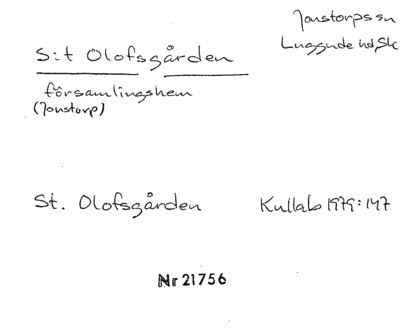 Jonstorps sn
Luggude hd, Sk
S:t Olofsgården
församlingshem
(Jonstorp)
St. Olofsgården Kullab 1979:147
Nr 21756